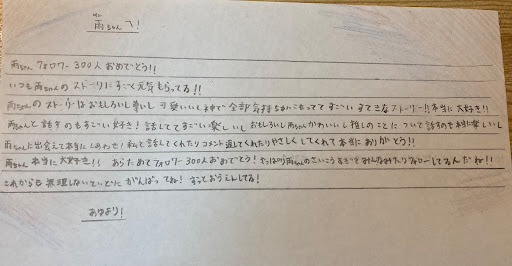 雨ちゃんへ!
雨ちゃんフォロワー300人おめでとう!!
いつも雨ちゃんのストーリーにすごく元気もらってる!!
雨ちゃんのストーリーはおもしろいし尊いし可愛いし神で全部気持ちがこもっててすごいすてきなストーリー!!本当に大好き!!
雨ちゃんと話すのもすごい好き!話しててすごい楽しいしおもしろいし雨ちゃんかわいいし推しのことについて話すのも本当に楽しいし
雨ちゃんに出会えて本当にしあわせ!私と話してくれたりコメント返してくれたりやさしくしてくれて本当にありがとう!!
雨ちゃん本当に大好き!!あらためてフォロワー300人おめでとう!やっぱり雨ちゃんのさいこうすぎてみんなみたりフォローしてるんだね!!
これからも無理しないていどにがんばってね!ずっとおうえんしてる!
より!